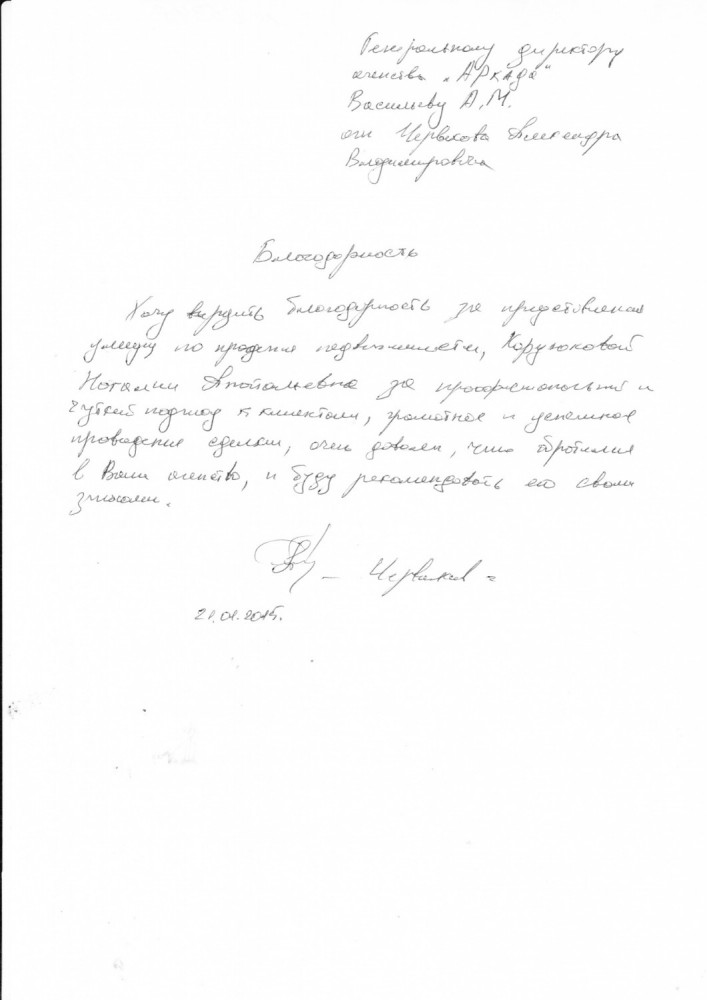 Генеральному директору
агенства „Аркада"
Васильеву А.М.
от Червякова Александра
Владимировича
Благодарность
Хочу выразить благодарность за предоставленная
услугу по продаже недвижимости, Корунковой
Наталии Анатольевне за профессиональный и
чуткий подход к клиентам, грамотное и успешное
проведение сделки, очень доволен, что обратился
в Ваше агенство, и буду рекомендовать его своим
знакомым.
Червяков
21.01.2015.